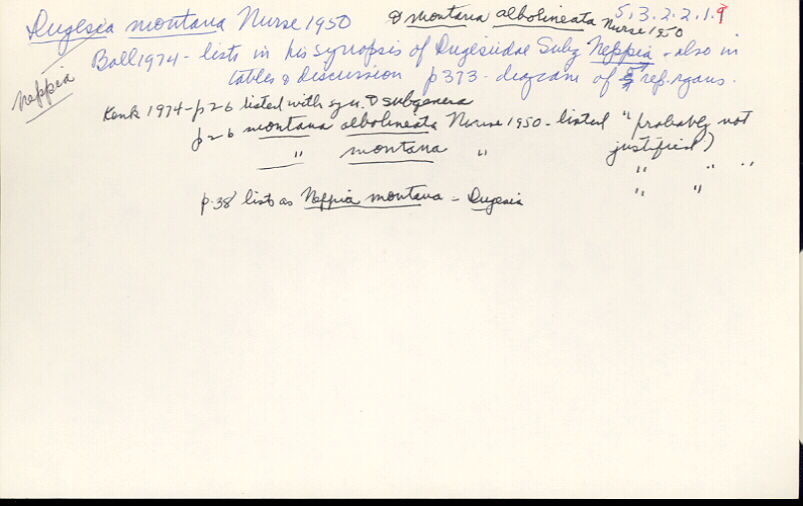 Dugesia montana Nurse 1950 & montana albolineata Nurse 1950 5.3.2.2.1.9
Neppia
Ball 1974 - lists in his synopsis of Dugesiidae Subg Neppia - also in
tables & discussion p 373 - diagram of rep. organs.
Kenk 1974 - p 26 listed with syn. & subgenera
p 26 montana albolineata Nurse 1950 - listed "probably not
justified)
" montana " " " "
" "
p. 38 lists as Neppia montana - Dugesia